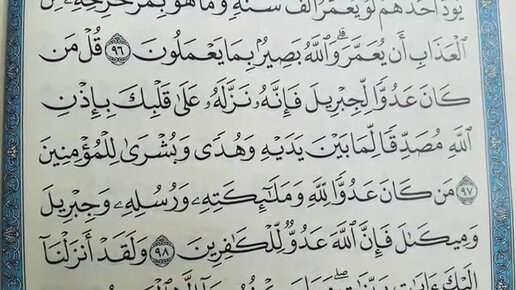 يَوَدُّ أَحَدُهُمْ لَوْ يُعَمَّرُ أَلْفَ سَنَةٍ وَمَا هُوَ بِمُزَحْزِحِهِۦ مِنَ
ٱلْعَذَابِ أَن يُعَمَّرَ ۗ وَٱللَّهُ بَصِيرٌۢ بِمَا يَعْمَلُونَ ٩٦ قُلْ مَن
كَانَ عَدُوًّا لِّجِبْرِيلَ فَإِنَّهُۥ نَزَّلَهُۥ عَلَىٰ قَلْبِكَ بِإِذْنِ
ٱللَّهِ مُصَدِّقًا لِّمَا بَيْنَ يَدَيْهِ وَهُدًى وَبُشْرَىٰ لِلْمُؤْمِنِينَ
٩٧ مَن كَانَ عَدُوًّا لِّلَّهِ وَمَلَـٰٓئِكَتِهِۦ وَرُسُلِهِۦ وَجِبْرِيلَ
وَمِيكَىٰلَ فَإِنَّ ٱللَّهَ عَدُوٌّ لِّلْكَـٰفِرِينَ ٩٨ وَلَقَدْ أَنزَلْنَآ
إِلَيْكَ ءَايَـٰتٍۭ بَيِّنَـٰتٍ ۖ وَمَا